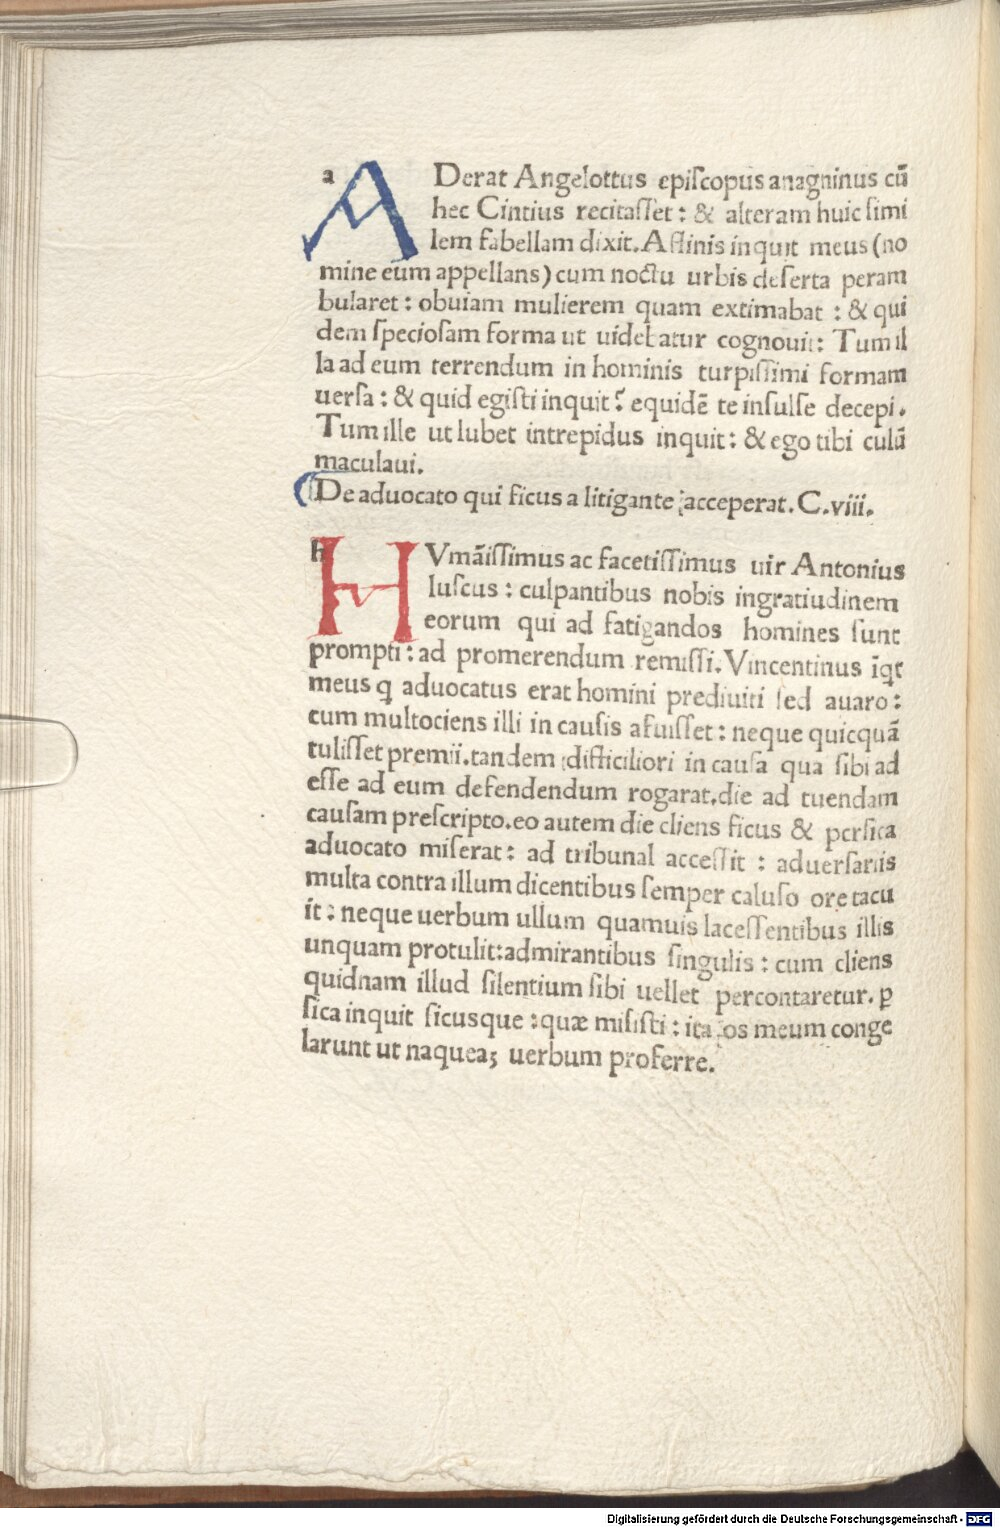 a ADerat Angelottus epiſcopus anagninus cū
hec Cintius recitaſſet: & alteram huic ſimi
lem fabellam dixit. Affinis inquit meus (no
mine eum appellans) cum noctu urbis deſerta peram
bularet: obuiam mulierem quam extimabat : & qui
dem ſpecioſam forma ut uidebatur cognouit: Tum il
la ad eum terrendum in hominis turpiſſimi formam
uerſa: & quid egiſti inquit? equidē te inſulſe decepi.
Tum ille ut lubet intrepidus inquit: & ego tibi culū
maculaui.
De aduocato qui ficus a litigante acceperat. C.viii.
h HVmāiſſimus ac facetiſſimus uir Antonius
luſcus: culpantibus nobis ingratiudinem
eorum qui ad fatigandos homines ſunt
prompti: ad promerendum remiſſi. Vincentinus īqt
meus q aduocatus erat homini prediuiti ſed auaro:
cum multociens illi in cauſis afuiſſet: neque quicquā
tuliſſet premii. tandem difficiliori in cauſa qua ſibi ad
eſſe ad eum defendendum rogarat. die ad tuendam
cauſam preſcripto. eo autem die cliens ficus & perſica
aduocato miſerat: ad tribunal acceſſit : aduerſariis
multa contra illum dicentibus ſemper caluſo ore tacu
it: neque uerbum ullum quamuis laceſſentibus illis
unquam protulit: admirantibus ſingulis: cum cliens
quidnam illud ſilentium ſibi uellet percontaretur. ꝑ
ſica inquit ficusque :quæ miſiſti: ita os meum conge
larunt ut naqueaꝫ uerbum proferre.
Digitalisierung gefördert durch die Deutsche Forschungsgemeinschaft - DFG